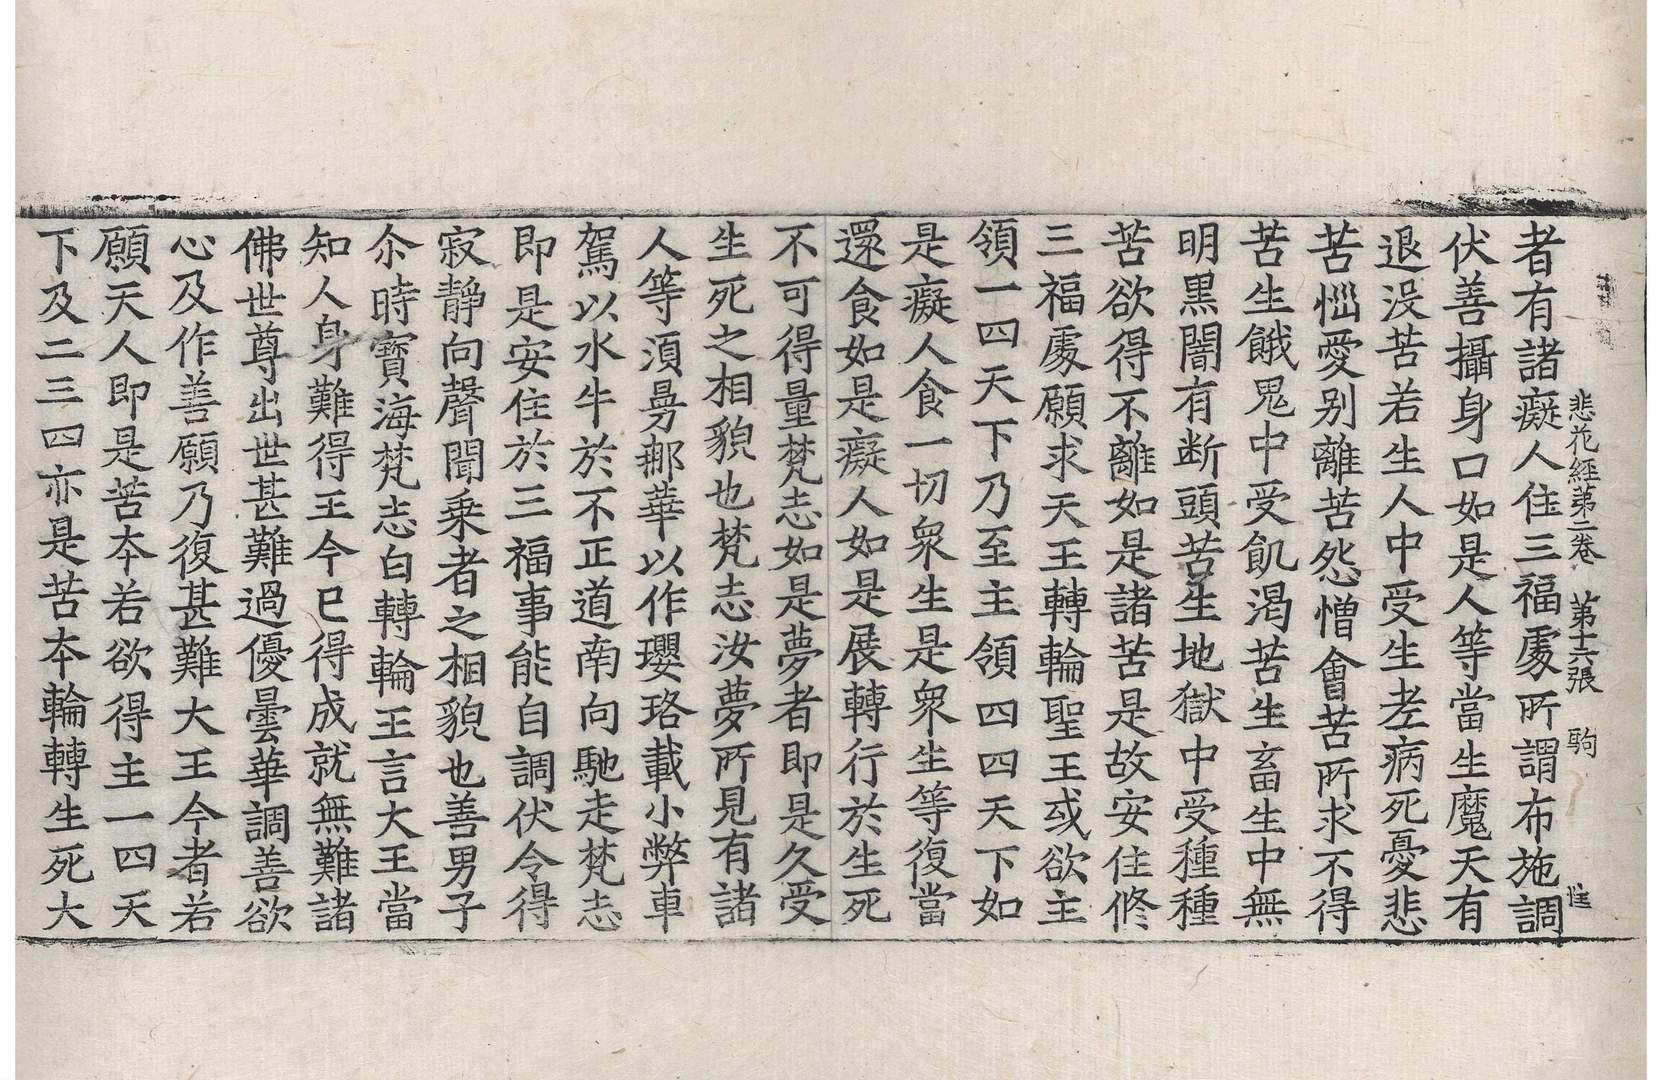 悲花經第二卷 第十六張 駒
者有諸癡人住三福處所謂布施調
伏善攝身口如是人等當生魔天有
退没苦若生人中受生老病死憂悲
苦惱愛别離苦怨憎會苦所求不得
苦生餓鬼中受飢渴苦生畜生中無
明黑闇有断頭苦生地獄中受種種
苦欲得不離如是諸苦是故安住修
三福處願求天王轉輪聖王或欲主
領一四天下乃至主領四四天下如
是癡人食一切衆生是衆生等復當
還食如是癡人如是展轉行於生死
不可得量梵志如是夢者即是久受
生死之相貌也梵志汝夢所見有諸
人等湏曼那華以作瓔珞載小弊車
駕以水牛於不正道南向馳走梵志
即是安住於三福事能自調伏令得
寂靜向聲聞乘者之相貌也善男子
尒時寶海梵志白轉輪王言大王當
知人身難得王今已得成就無難諸
佛世尊出世甚難過優曇華調善欲
心及作善願乃復甚難大王今者若
願天人即是苦夲若欲得主一四天
下及二三四亦是苦夲輪轉生死大